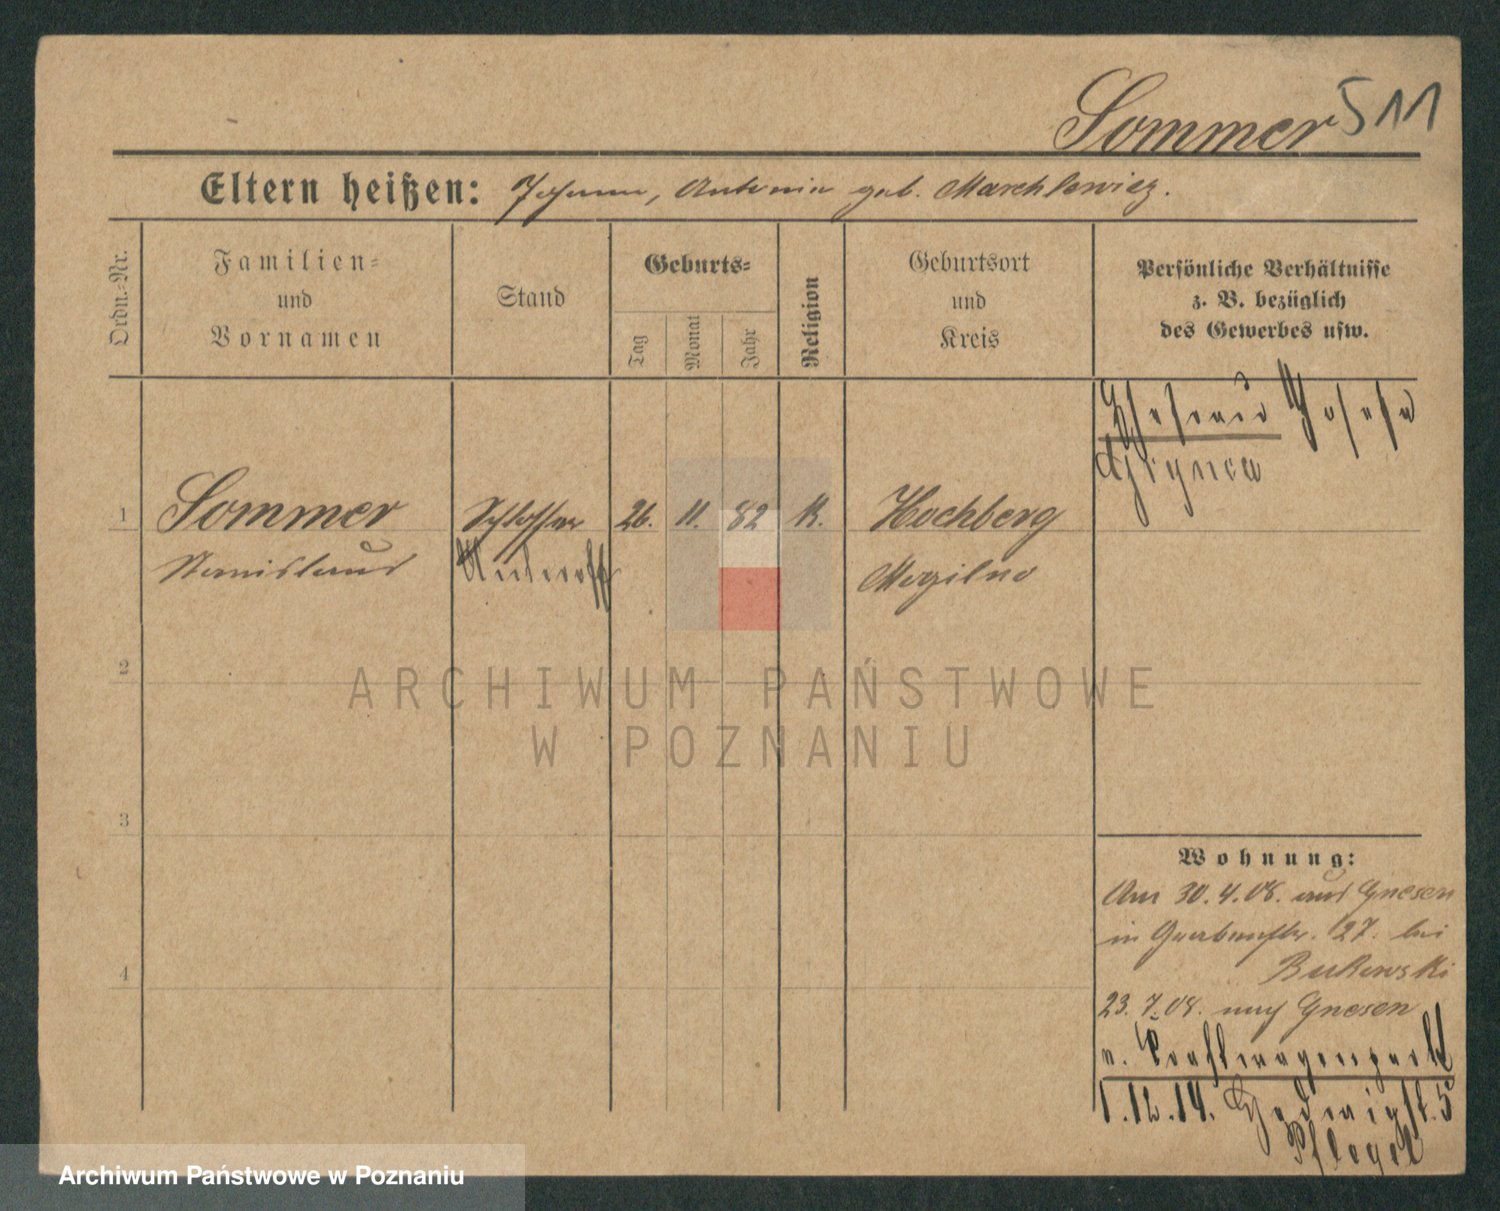 Sommer 511
Eltern heißen: Johann, Antonie geb. Marchlewicz.
Ordn.-Nr.
Familien-
und
Vornamen
Stand
Geburts-
Tag
Monat
Jahr
Religion
Geburtsort
und
Kreis
Persönliche Verhältnisse
z. B. bezüglich
des Gewerbes usw.
Ehefrau Josefa
1 Sommer Schlosser 26. 11. 82 K. Hochberg
Stanislaus Unteroff Mogilno
2
3
4
Wohnung:
Am 30.4.08. aus Gnesen
in 27. bei
Bukowski
23.7.08. nach Gnesen
v. Kraftwagenpark
1.12.14. Hedwigst. 5
ARCHIWUM PAŃSTWOWE
W POZNANIU
Archiwum Państwowe w Poznaniu